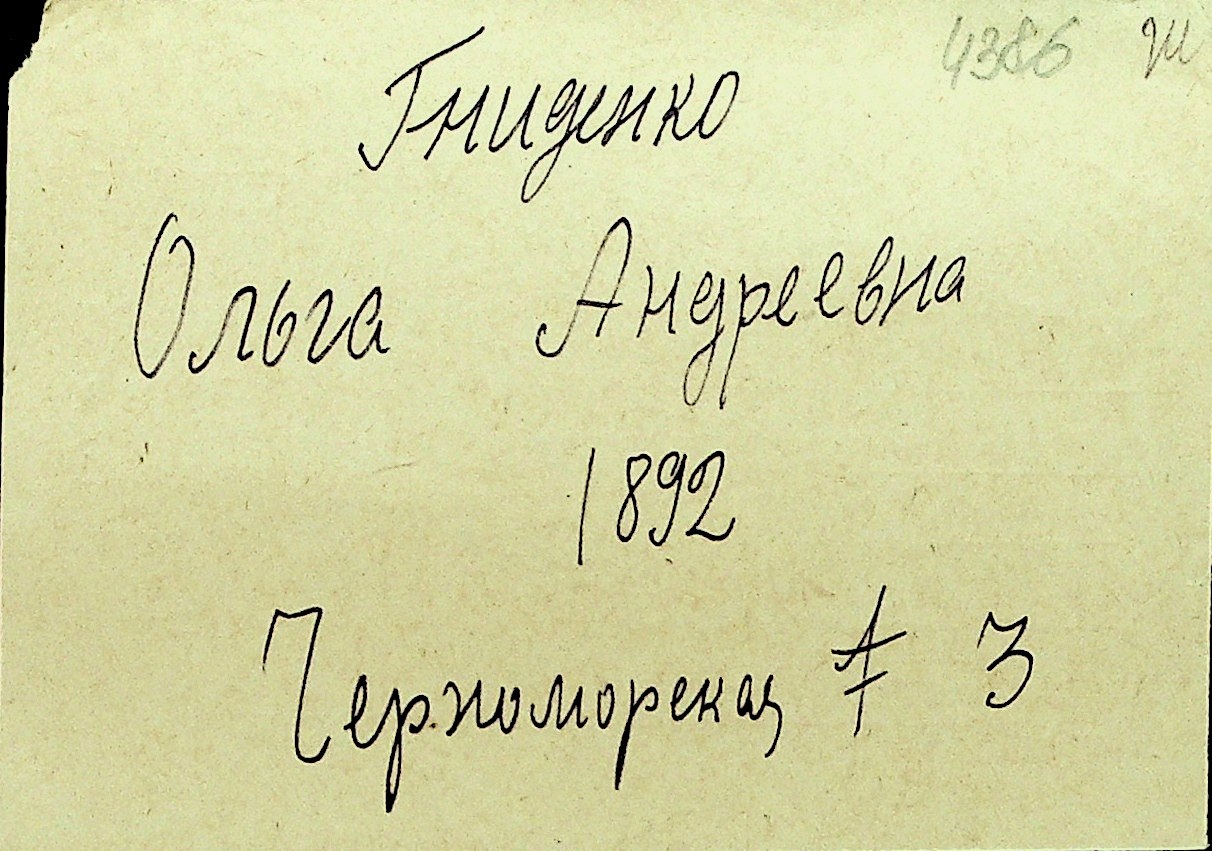 4386 Ш
Гниденко
Ольга Андреевна
1892
Черноморская 3